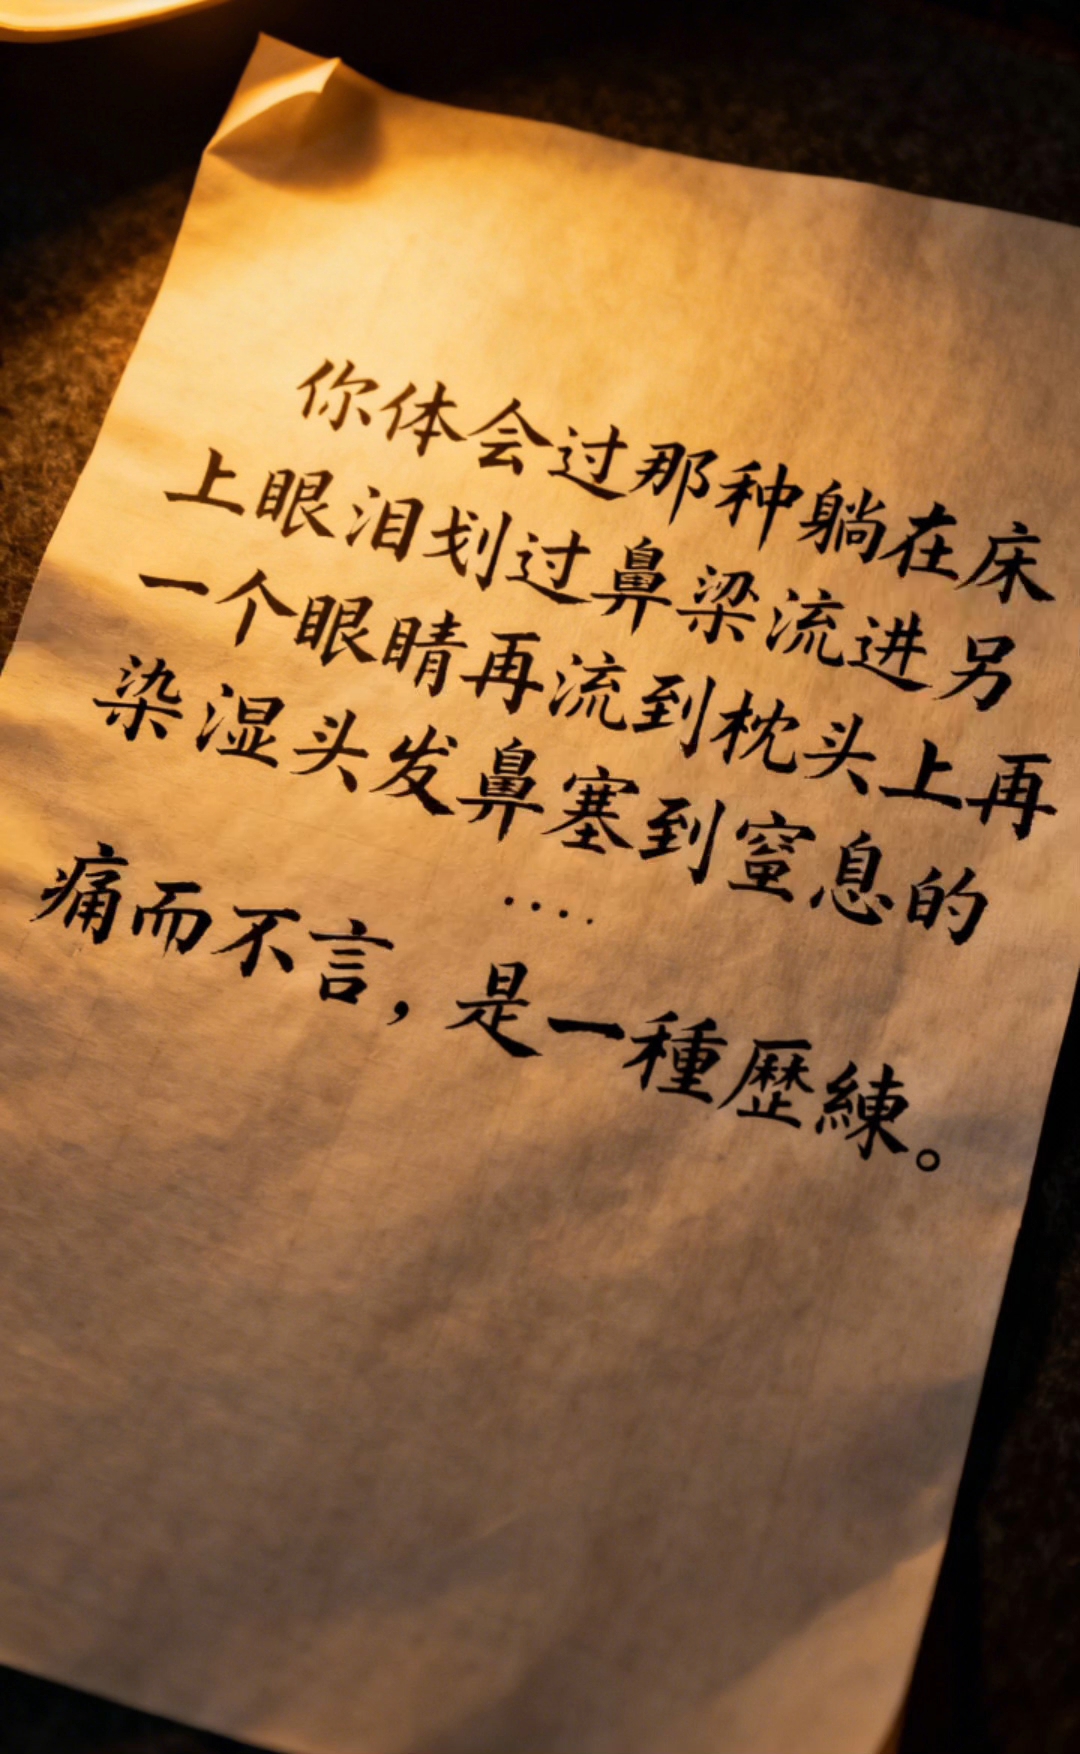 你体会过那种躺在床
上眼泪划过鼻梁流进另
一个眼睛再流到枕头上再
染湿头发鼻塞到窒息的
....
痛而不言，是一種歷練。